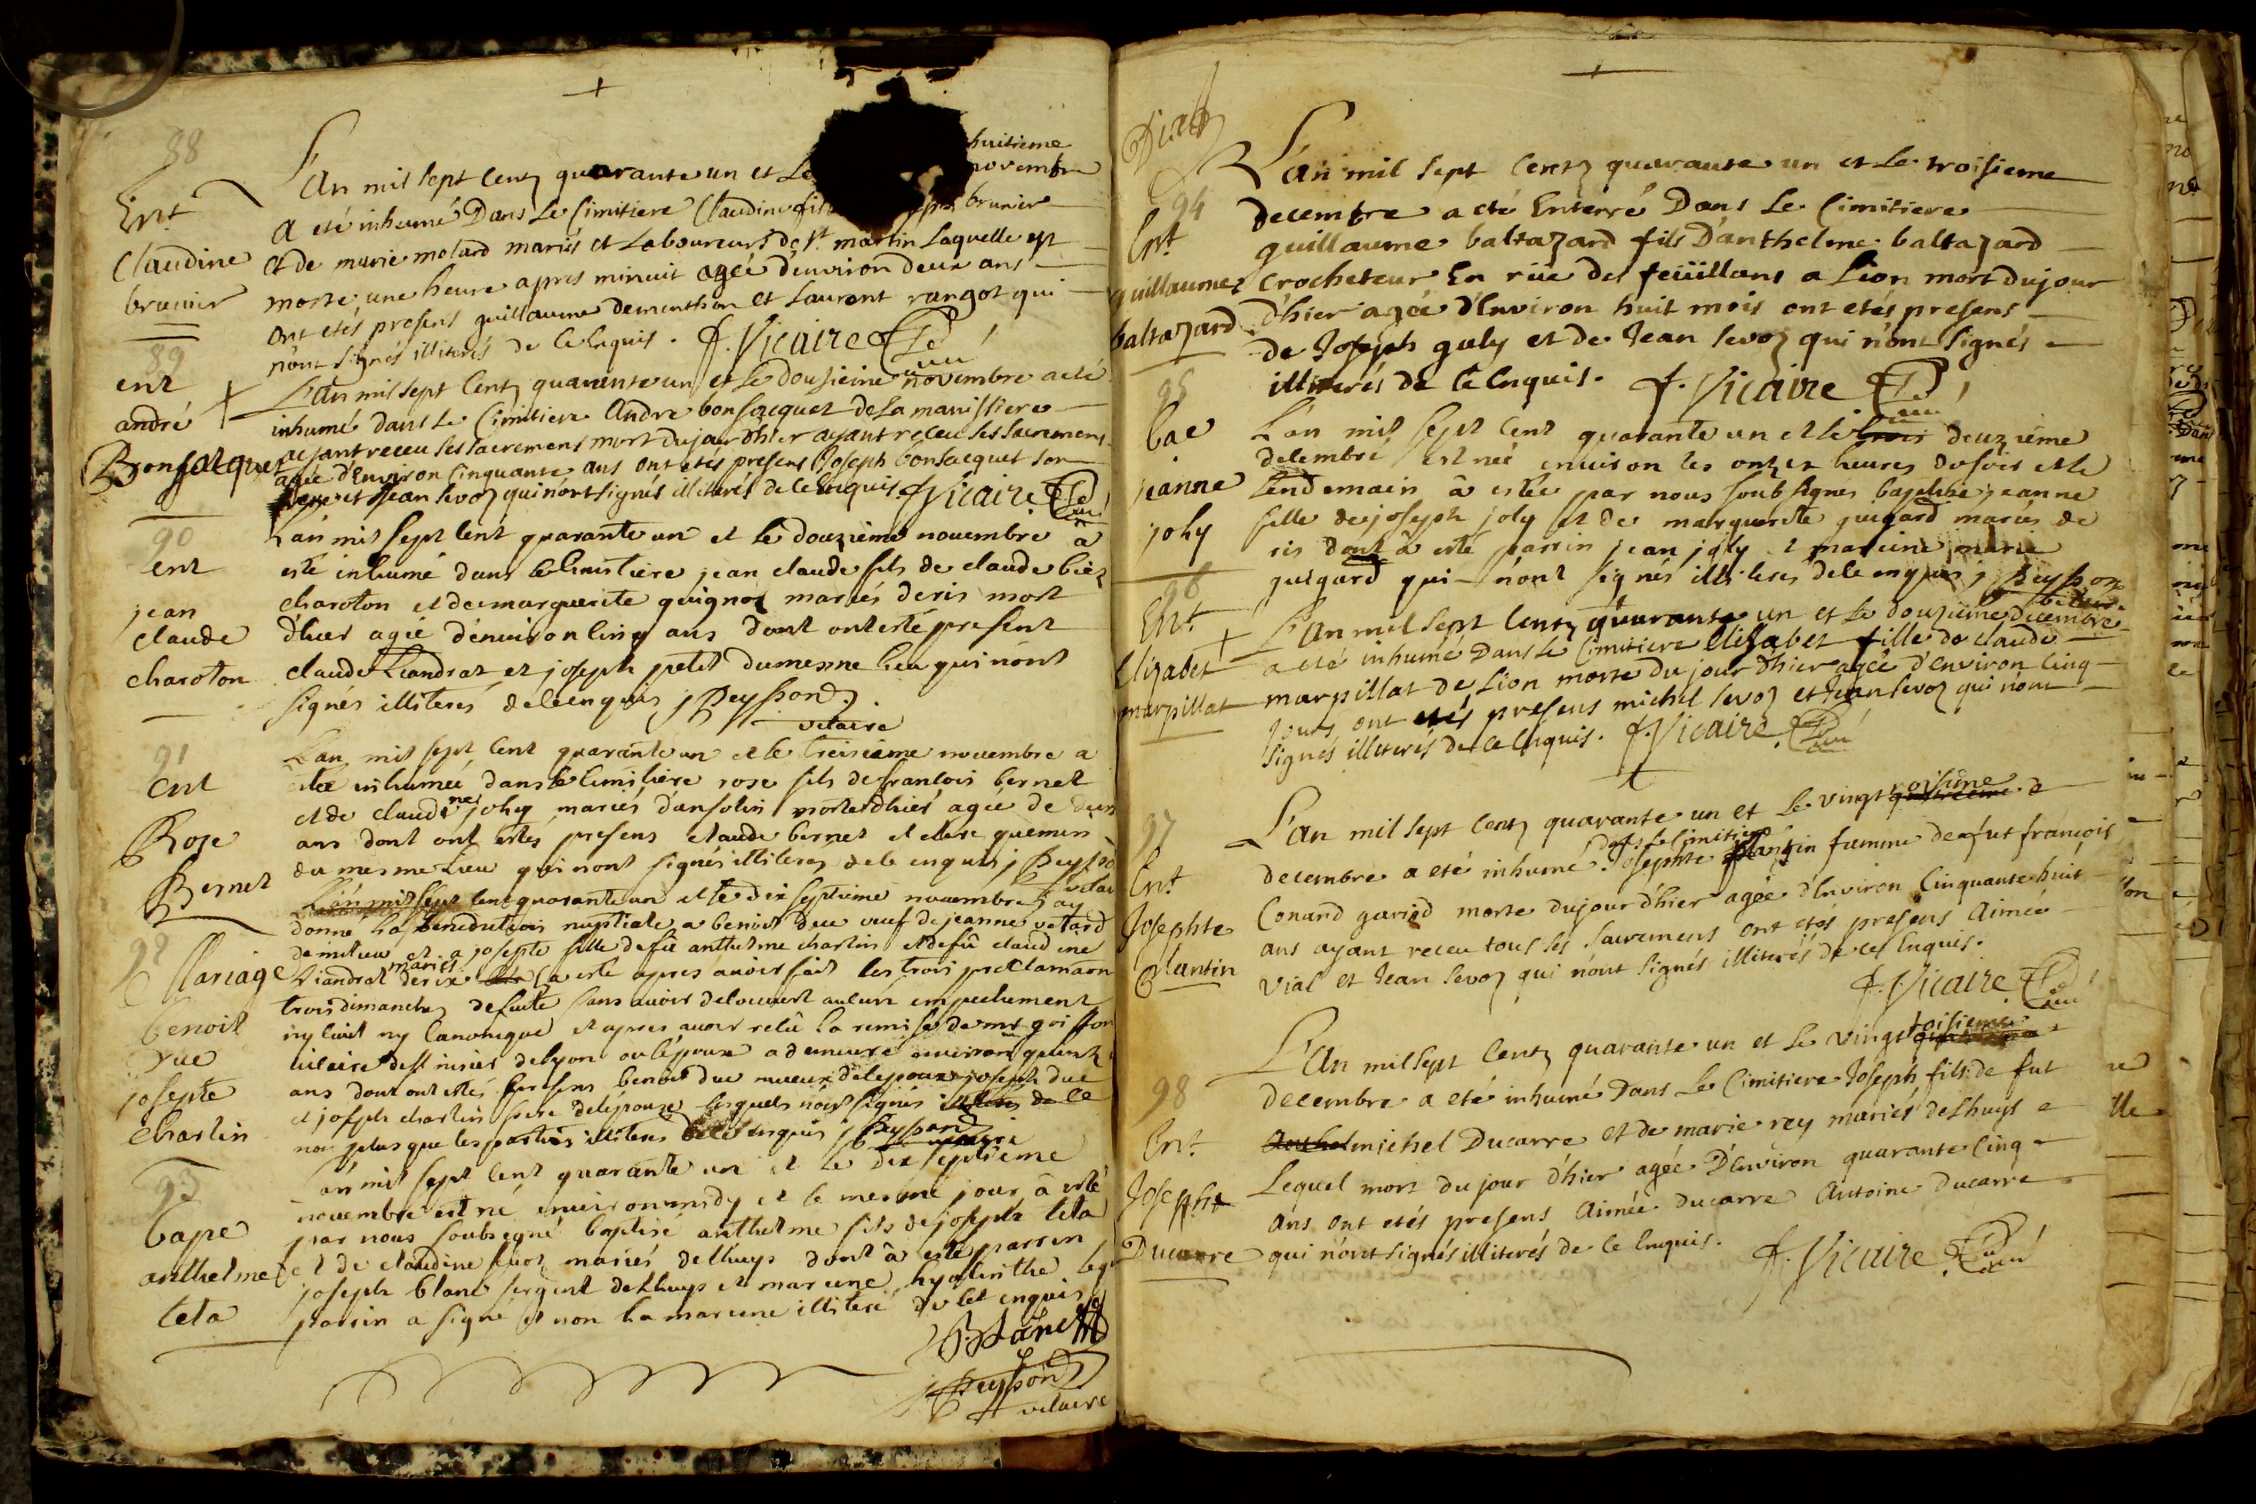 88
Ent
Claudine
brunier
L'An mil sept Centz quarante un et Le huitieme
novembre
A eté inhumé Dans Le Cimitiere Claudine brunier
et de marie molard mariés et Laboureurs de St martin Laquelle est
morte une heure apres minuit agée d'environ deux ans
ont etés presens guillaume dementhon et Laurent rangot qui
n'ont signés illiterés de ce Enquis. f. Vicaire
89
ent
andré
Bonsacquet
L'An mil sept Centz quarante un et Le douzieine novembre a eté
inhumé dans Le Cimitiere Andre bonsacquet de La manissiere
ayant receu ses sacremens mort du jour d'hier ayant receu ses sacremens
agée d'Environ Cinquante ans ont etés presens Joseph bonsacquet son
frere et Jean Sevoz qui n'ont signés illiterés de ce Enquis. f. Vicaire
90
ent
jean
claude
charoton
L'an mil sept cent quarante un et le douzieme novembre a
esté inhumé dans le Cimitiere jean claude fils de claude
charoton et de marguerite guignoz mariés deris mort
d'hier agée d'environ cinq ans dont ont esté present
claude Liandrat et joseph petit du mesme lieu qui n'ont
signés illiterés de ce enquis j Peysson
vicaire
91
Ent
Rose
Bernet
L'an mil sept cent quarante un et le treisieme novembre a
este inhumée dans le cimitiere rose fils de francois bernet
et de claudine joly mariés d'ansolin morte d'hier agée de deux
ans dont ont estes presens claude bernet et quemin
du mesme Lieu qui n'ont signés illiteres de ce enquis j Peysson
vicaire
92
Mariage
benoit
Due
josepte
Charlin
L'an mil sept cent quarante un et le dix septieme novembre j'ay
donné la benediction nuptiale a benoit due veuf de jeanne vetard
de milieu et a josepte fille de fû anthelme charlin et de fû claudine
Liandrat mariés derix a esté apres avoir fait les trois proclamaon
trois dimanches de suite sans avoir decouvert aucun empechement
ny civil ny canonique et apres avoir reçû la remise de mr goiffon
vicaire de st nisier de lyon ou l'epoux a demeuré environ quinze
ans dont ont estés presens benoit due neveux de l'epoux joseph due
et joseph charlin frere de l'épouze lesquels n'ont signés illiteres de ce
non plus que les parties illiteres de ce enquis j Peysson
vicaire
93
bape
anthelme
teta
L'an mil sept cent quarante un et le dix septieme
novembre est né environ midy et le mesme jour a esté
par nous soubsigné baptisé anthelme fils de joseph teta
et de claudine mariés de lhuys dont a esté parrin
joseph blanc sergent de Lhuys et marenne hyacinthe
parrin a signé et non la marenne illiteré de ce enquis
Blanc
j Peysson
vicaire
94
Ent
guillaume
baltazard
L'an mil sept Centz quarante un et Le troisieme
decembre a eté Enterré Dans Le Cimitiere
guillaume baltazard fils D'anthelme baltazard
Crocheteur En rüe des feüillans a Lion mort du jour
d'hier agée d'Environ huit mois ont etés presens
de Joseph guly et de Jean Sevoz qui n'ont signés
illiterés de Ce Enquis. f. Vicaire
95
bae
jeanne
joly
L'an mil sept cent quarante un et le trois deuzieme
decembre est née environ les onze heures du soir et le
lendemain a estée par nous soubsignes baptisée jeanne
fille de joseph joly et de marguerite guigard mariés de
ris dont a esté parrin jean joly et marenne marie
guigard qui n'ont signés illiteres de ce enquis j Peysson
vicaire
96
Ent
Elizabet
marpillat
L'An mil sept Centz quarante un et Le douzieme Decembre
a eté inhumé Dans Le Cimitiere Elizabet fille de Claude
marpillat de Lion morte du jour d'hier agée d'Environ Cinq
jours ont etés presens michel Sevoz et Jean Sevoz qui n'ont
signés illiterés de Ce Enquis. f. Vicaire
97
Ent
Josephte
plantin
L'an mil sept Centz quarante un et Le vingt troisieme
decembre a eté inhumé Dans Le Cimitiere Josephte plantin femme de fut françois
Conand gariod morte du jour d'hier agée d'Environ Cinquante huit
ans ayant receu tous ses sacremens ont etés presens Aimée
vial et Jean Sevoz qui n'ont signés illiterés de ce Enquis.
f. Vicaire
98
Ent
Josephe
Ducarre
L'An mil sept Centz quarante un et Le vingt troisieme
decembre a eté inhumé Dans Le Cimitiere Joseph fils de fut
michel Ducarre et de marie rey mariés de Lhuys
Lequel mort du jour d'hier agée D'Environ quarante Cinq
ans ont etés presens Aimée ducarre Antoine Ducarre
qui n'ont signés illiterés de Ce Enquis. f. Vicaire